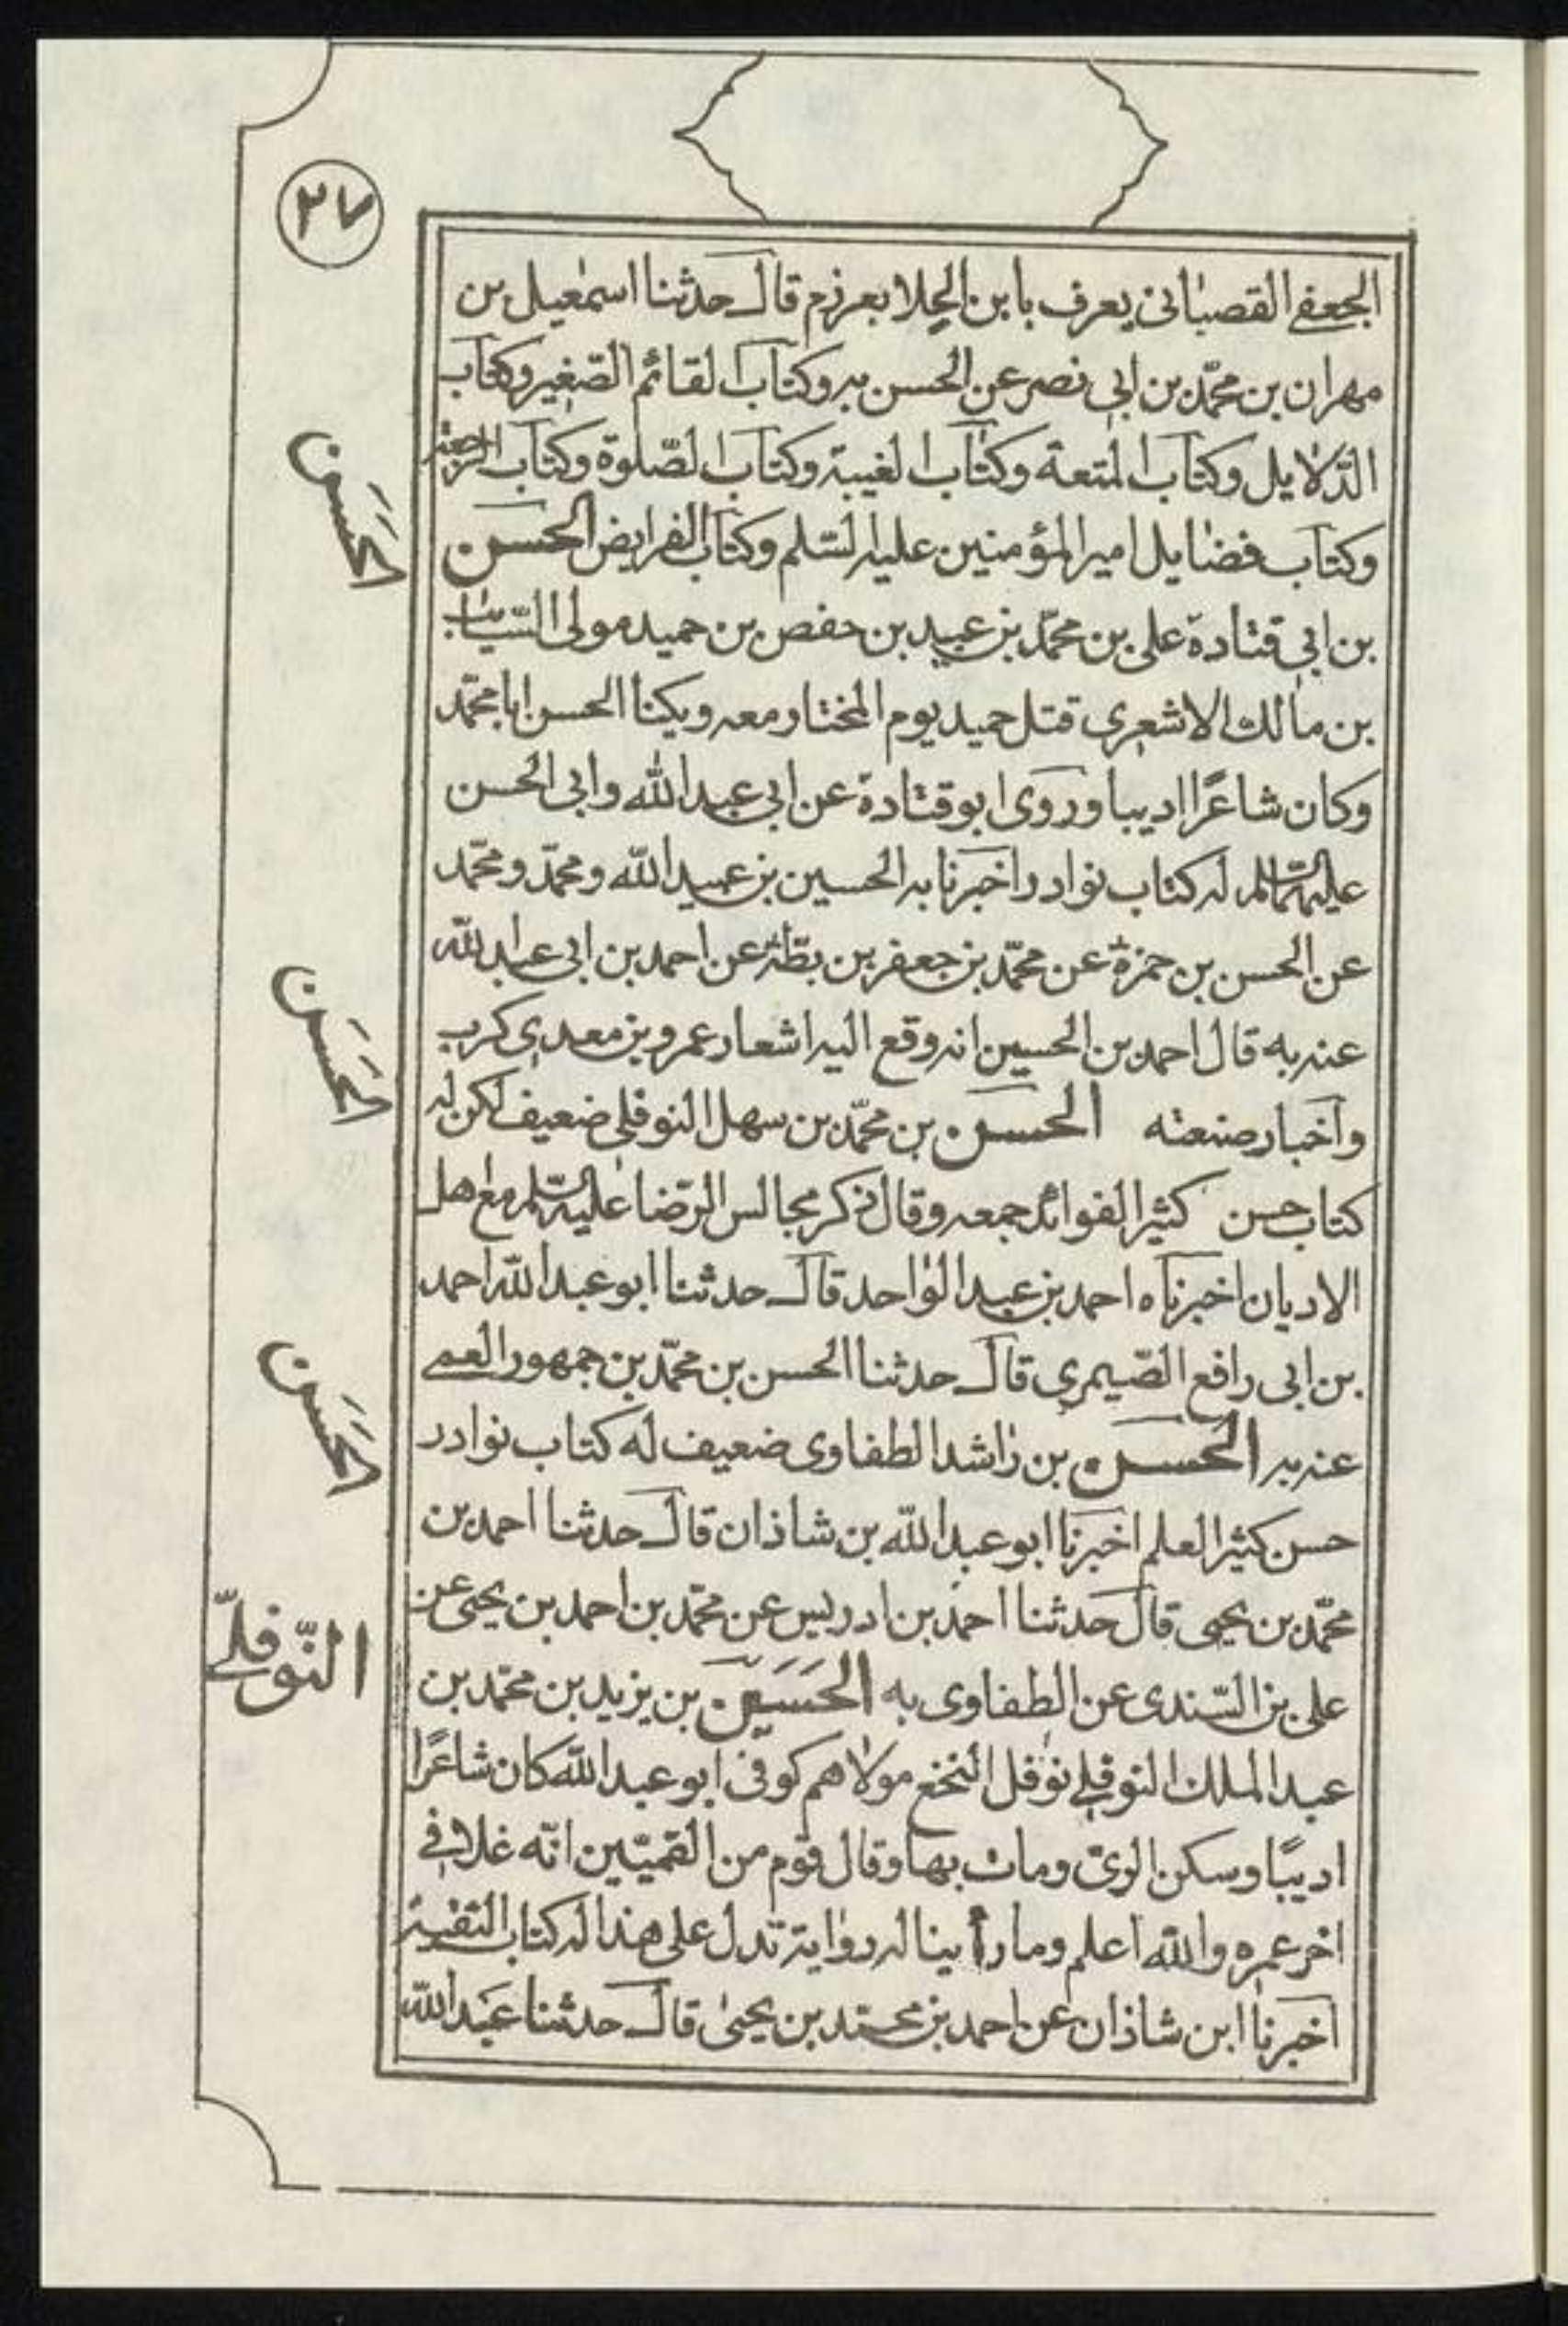 ٢٧
الجعفی القصبانی یعرف بابن الجلا بعرزم قال حدثنا اسمعیل بن
مهران بن محمّد بن ابی نصر عن الحسن به وکتاب القائم الصّغیر وکتاب
الدّلایل وکتاب المتعة وکتاب الغیبة وکتاب الصّلوة وکتاب الرجعة
الحسن
وکتاب فضایل امیر المؤمنین علیه السّلم وکتاب الفرایض الحسن
بن ابی قتادة علی بن محمّد بن عبید بن حفص بن حمید مولی السّایب
بن مالك الاشعری قتل حمید یوم المختار معه ویکنا الحسن ابا محمّد
وکان شاعرًا ادیبا وروی ابو قتادة عن ابی عبد الله وابی الحسن
علیهما السّلم له کتاب نوادر اخبرنا به الحسین بن عبید الله ومحمّد ومحمّد
عن الحسن بن حمزة عن محمّد بن جعفر بن بطّة عن احمد بن ابی عبد لله
الحسن
عنه به قال احمد بن الحسین انه وقع الیه اشعار عمرو بن معدی کرب
واخبار صنعته الحسن بن محمّد بن سهل النوفلی ضعیف لکن له
کتاب حسن کثیر الفوائد جمعه وقال ذکر مجالس الرّضا علیه السّلم مع اهل
الادیان اخبرناه احمد بن عبد الواحد قال حدثنا ابو عبد الله احمد
بن ابی رافع الصّیمری قال حدثنا الحسن بن محمّد بن جمهور العمی
الحسن
عنه به الحسن بن راشد الطفاوی ضعیف له کتاب نوادر
حسن کثیر العلم اخبرنا ابو عبد الله بن شاذان قال حدثنا احمد بن
محمّد بن یحیی قال حدثنا احمد بن ادریس عن محمّد بن احمد بن یحیی عن
النّوفلیّ
علی بن السّندی عن الطفاوی به الحسین بن یزید بن محمّد بن
عبد الملك النوفلی نوفل النخع مولاهم کوفی ابو عبد الله کان شاعرًا
ادیبًا وسکن الری ومات بها وقال قوم من القمیّین انّه غلا فی
اخر عمره والله اعلم وما رأینا له روایة تدل علی هذا له کتاب التقیة
اخبرنا ابن شاذان عن احمد بن محمّد بن یحیی قال حدثنا عبد الله